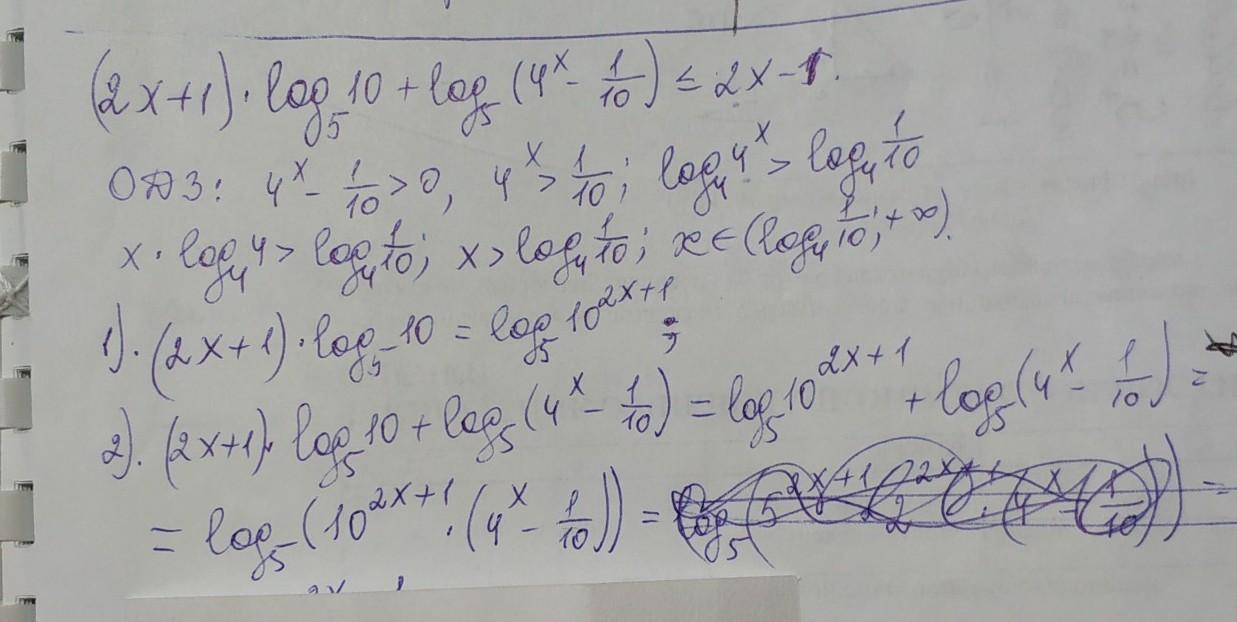 (2x+1)·log₅10 + log₅(4ˣ - 1/10) ≤ 2x-1.
ОДЗ: 4ˣ - 1/10 > 0, 4ˣ > 1/10; log₄4ˣ > log₄ 1/10
x · log₄4 > log₄ 1/10; x > log₄ 1/10; x ∈ (log₄ 1/10; +∞).
1). (2x+1)·log₅10 = log₅10²ˣ⁺¹;
2). (2x+1)·log₅10 + log₅(4ˣ - 1/10) = log₅10²ˣ⁺¹ + log₅(4ˣ - 1/10) =
= log₅(10²ˣ⁺¹·(4ˣ - 1/10)) =